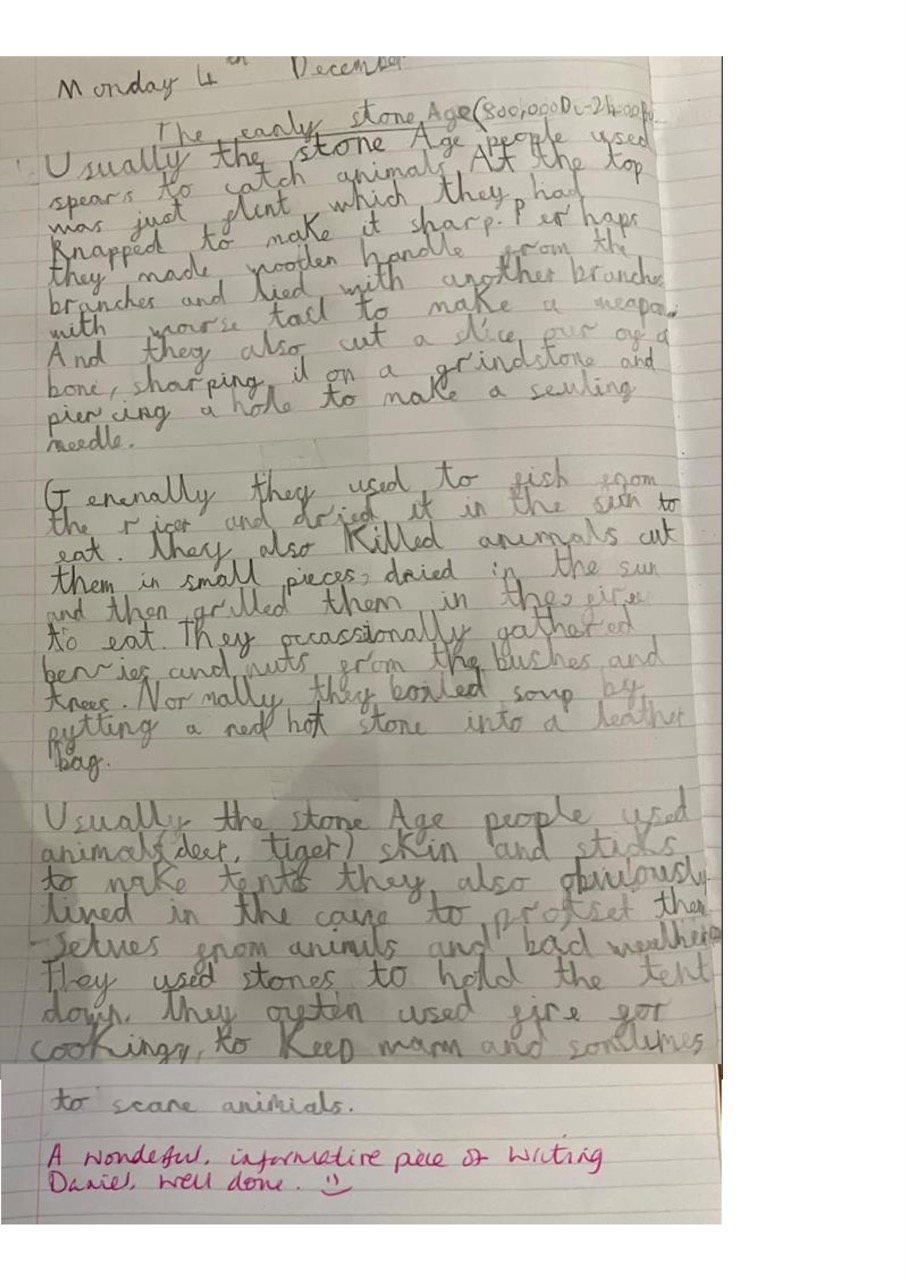 Monday 4th December
The early stone Age (800,000Bc-2400Bc
Usually the stone Age people used
spears to catch animals At the top
was just flint which they had
knapped to make it sharp. Perhaps
they made wooden handle from the
branches and tied with another branches
with mourse tail to make a weapon.
And they also cut a slice our of a
bone, sharping it on a grindstone and
piercing a hole to make a sewling
needle.
Generally they used to fish from
the river and dried it in the sun to
eat. They also killed animals cut
them in small pieces, dried in the sun
and then grilled them in the fire
to eat. They occassionally gathered
berries and nuts from the bushes and
trees. Normally they boiled soup by
putting a red hot stone into a leather
bag.
Usually the stone Age people used
animals (deer, tiger) skin and sticks
to make tents they also obviously
lived in the cave to protset them
-selves from animils and bad weather
They used stones to hold the tent
down. They often used fire for
cooking, to keep warm and somtimes
to scare animials.
A wondeful, informative piece of writing
Daniel, well done.